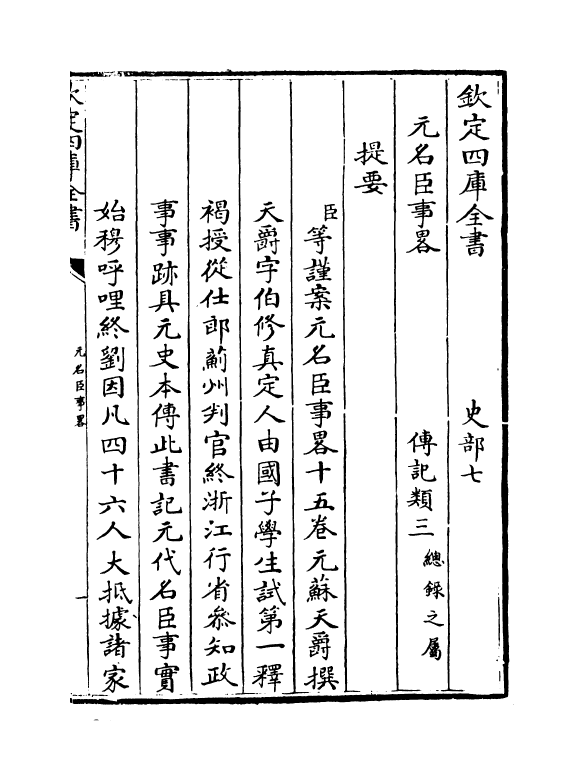 欽定四庫全書　史部七
元名臣事畧　傳記類三總錄之屬
提要
臣等謹案元名臣事畧十五卷元蘇天爵撰
天爵字伯修真定人由國子學生試第一釋
褐授從仕郎薊州判官終浙江行省叅知政
事事跡具元史本傳此書記元代名臣事實
始穆呼哩終劉因凡四十六人大抵據諸家
欽定四庫全書　元名臣事畧　一